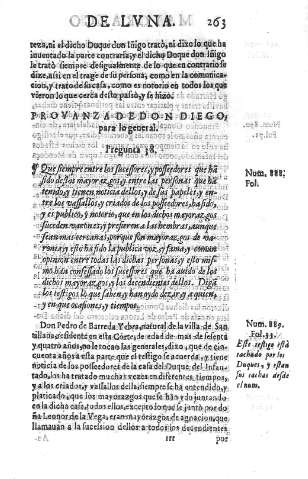 DE LVNA. 263
teza, ni el dicho Duque don Iñigo tratò, ni dixo lo que ha
inuentado la parte contraria, y el dicho Duque don Iñigo
le tratò siempre desigualmente de lo que en contrario se
dize, assi en el trage de su persona, como en la comunicacio
n, y trato de su casa, como es notorio en todos los que
vieron lo que cerca desto passò, y se hizo.
PROVANZA DE DON DIEGO,
para lo general.
Pregunta 38.
Que siempre entre los sucessores, y posseedores que hã
sido de los mayorazgos, y entre las personas que hã
tenido, y tienen noticia dellos, y de sus papeles, y en-
tre los vassallos, y criados de los posseedores, ha sido,
y es publico, y notorio, que en los dichos mayorazgos
suceden varones, y prefieren a las hembras, aunque
sean mas remotos, porque son mayorazgos de va-
ronia, y esto ha sido la publica voz, y fama, y comun
opinion entre todas las dichas personas, y esto mis-
mo han confessado los sucessores que ha auido de los
dichos mayorazgos, y los decendientes dellos. Digã
los testigos lo que saben, y han oydo dezir, a quiẽ,
y en que ocasiones, y tiempos.
Num. 888.
Fol.
Don Pedro de Barreda Yebra, natural de la villa de San-
tillana, residente en esta Corte, de edad de mas de sesenta
y quatro años, no le tocan las generales, dixo, que de cin-
cuenta años a esta parte, que el testigo se acuerda, y tiene
noticia de los posseedores de la casa del Duque del Infan-
tado, los ha tratado muchas vezes en diferentes tiempos,
y a los criados, y vassallos della, siempre se ha entendido, y
platicado, que los mayorazgos que se han ydo juntando
en la dicha casa, todos excepto el que se juntò por do
ña Leonor de la Vega, eran mayorazgos de agnacion, que
llamauan a la sucesion dellos a todos los decendientes
Num. 889.
Fol. 33.
Este testigo està
tachado por los
Duques, y estan
sus tachas desde
el num.
III por